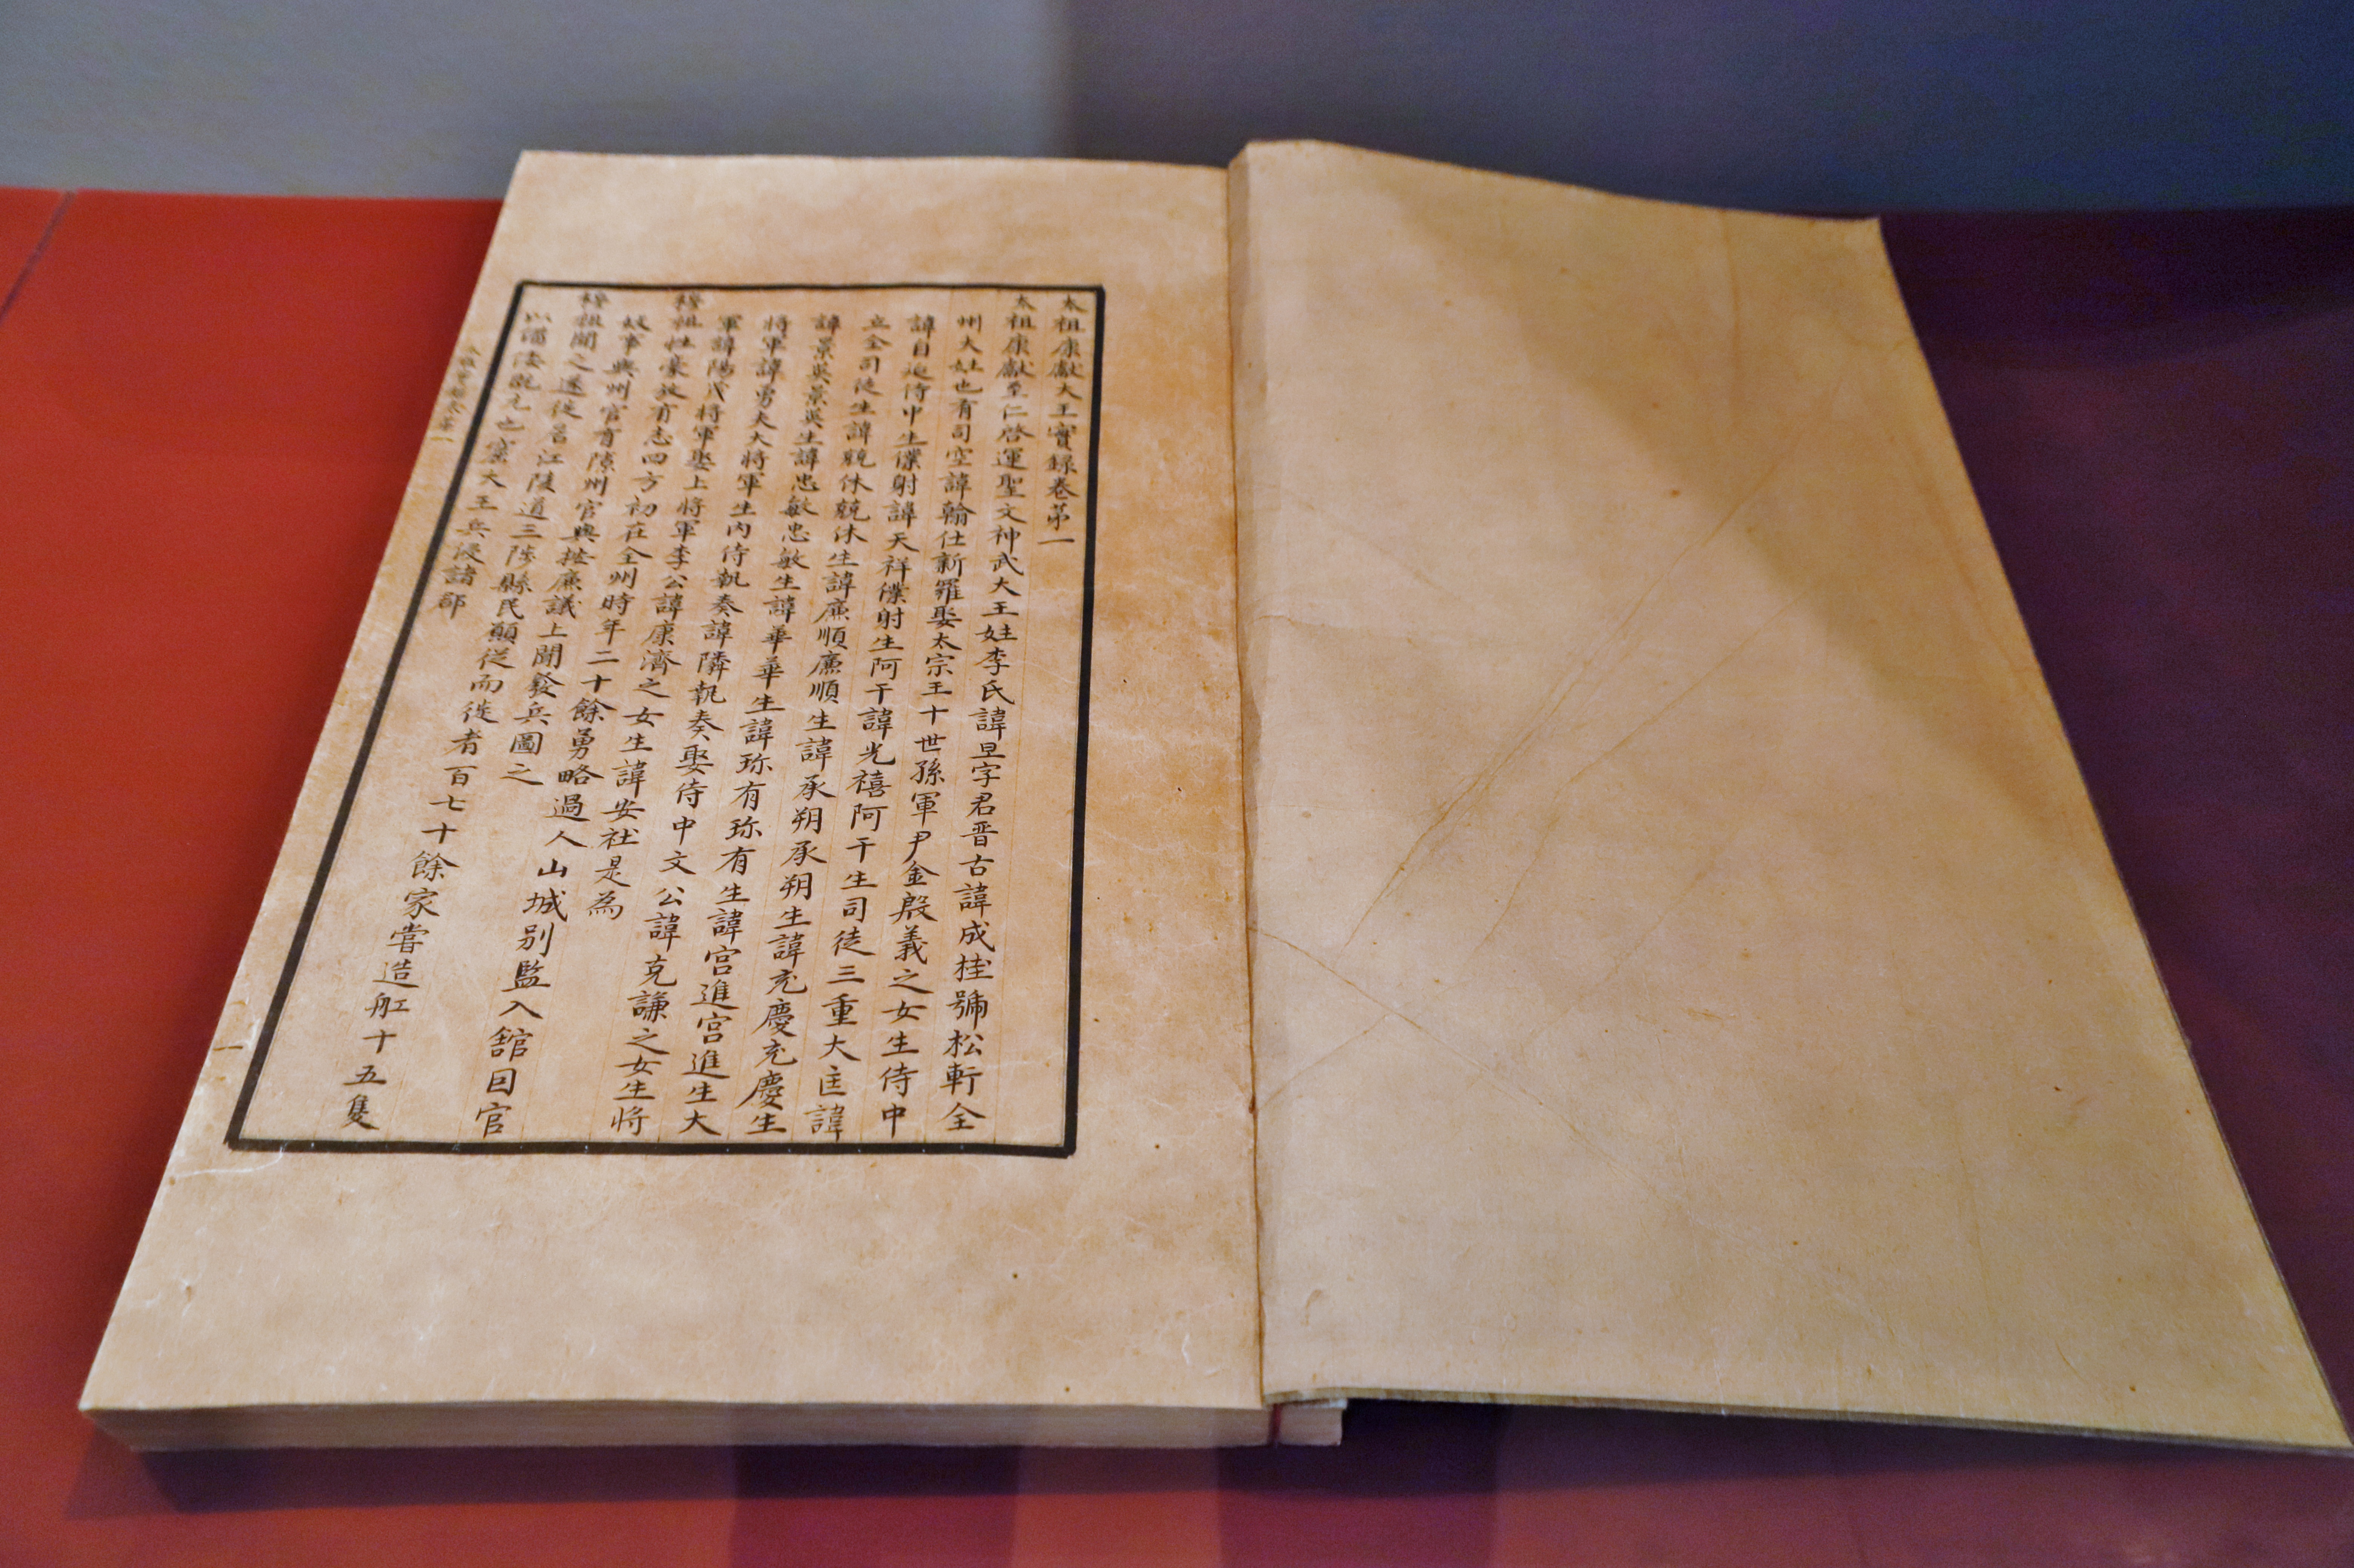 太祖康獻大王實録卷第一
太祖康獻至仁啓運聖文神武大王姓李氏諱旦字君晋古諱成桂號松軒全
州大姓也有司空諱翰仕新羅娶太宗王十世孫軍尹金殷義之女生侍中
諱自延侍中生僕射諱天祥僕射生阿干諱光禧阿干生司徒三重大匡諱
立全司徒生諱兢休兢休生諱廉順廉順生諱承朔承朔生諱充慶充慶生
諱景英景英生諱忠敏忠敏生諱華華生諱珎有珎有生諱宮進宮進生大
將軍諱勇夫大將軍生内侍執奏諱隣執奏娶侍中文公諱克謙之女生將
軍諱陽茂將軍娶上將軍李公諱康濟之女生諱安社是為
穆祖性豪放有志四方初在全州時年二十餘勇略過人山城别監入舘因官
妓事與州官有隙州官與按廉議上聞發兵圖之
穆祖聞之遂徙居江陵道三陟縣民願從而徙者百七十餘家嘗造舡十五隻
以備倭既元也窟大王兵侵諸郡
太祖實録卷第一
一